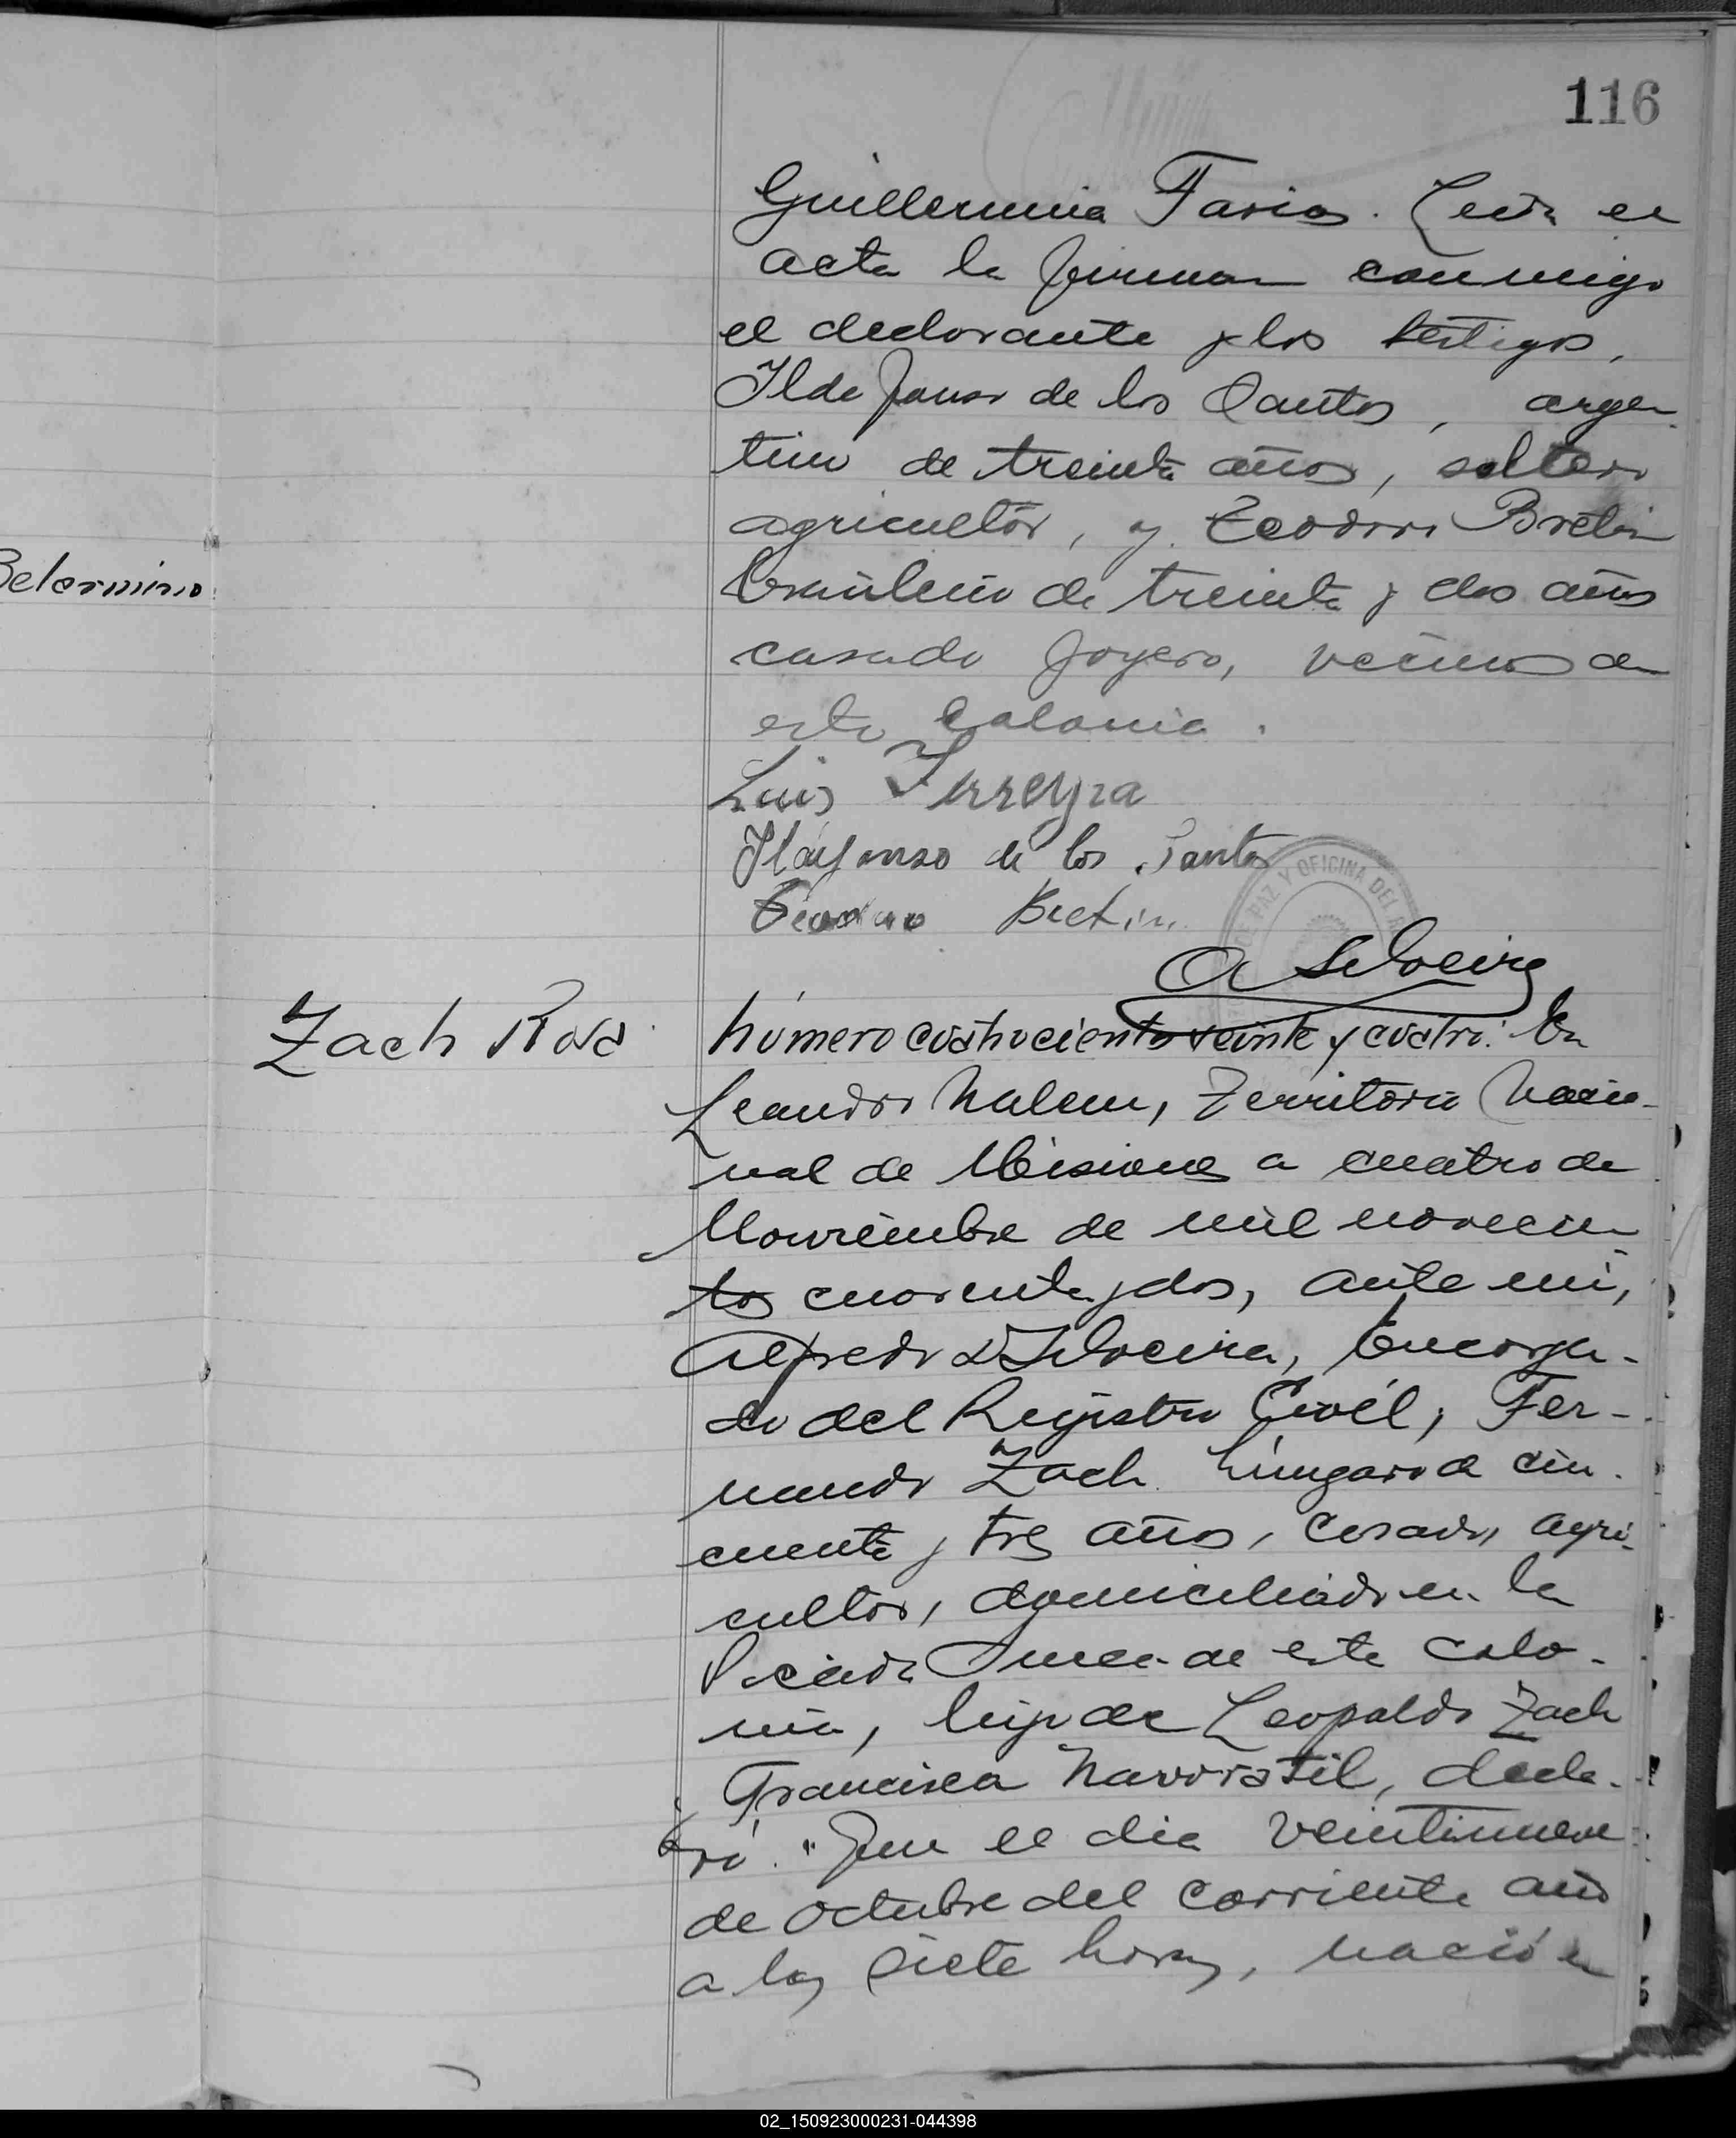 116
Guillermina Farias. Leída el
acta la firman conmigo
el declarante y los testigos,
Ildefonso de los Santos, argen-
tino de treinta años, soltero
agricultor, y Teodoro Bretin
brasileño de treinta y dos años
casado joyero, vecinos de
esta Colonia.
Luis Ferreyra
Ildefonso de los Santos
Teodoro Bretin
DE PAZ Y OFICINA DEL R
A Silveira
Belarmino
Zach Rosa
Número cuatrocientos veinte y cuatro. En
Leandro N Alem, Territorio Nacio-
nal de Misiones a cuatro de
Noviembre de mil novecien-
tos cuarenta y dos, ante mi,
Alfredo D Silveira, Encarga-
do del Registro Civil, Fer-
nando Zach húngaro de cin-
cuenta y tres años, casado, agri-
cultor, domiciliado en la
Picada de esta colo-
nia, hijo de Leopoldo Zach
y Francisca Navratil, decla-
ró: "Que el dia veintinueve
de octubre del corriente año
a las siete horas, nació en
02_150923000231-044398